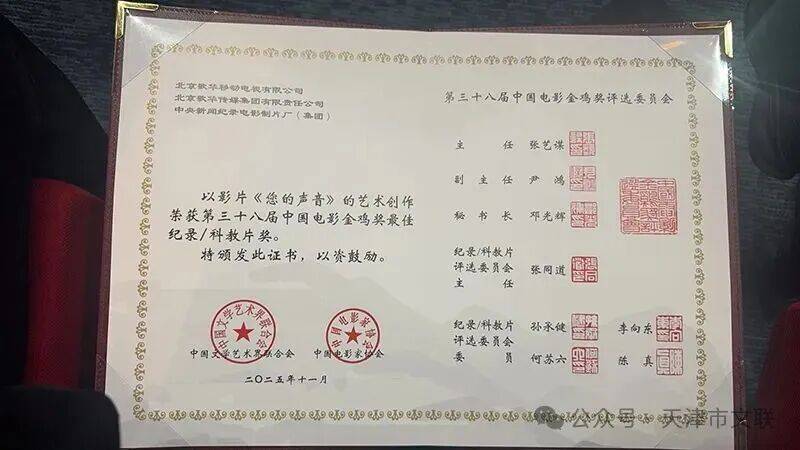 北京歌华移动电视有限公司
北京歌华传媒集团有限责任公司
中央新闻纪录电影制片厂（集团）
以影片《您的声音》的艺术创作
荣获第三十八届中国电影金鸡奖最佳
纪录/科教片奖。
特颁发此证书，以资鼓励。
中国文学艺术界联合会
中国电影家协会
中国文学艺术界联合会 中国电影家协会
二〇二五年十一月
第三十八届中国电影金鸡奖评选委员会
主任 张艺谋
副主任 尹鸿
秘书长 邓光辉
纪录/科教片
评选委员会 张同道
主任
纪录/科教片 孙承健 李向东
评选委员会
委员 何苏六 陈真
公众号·天津市文联